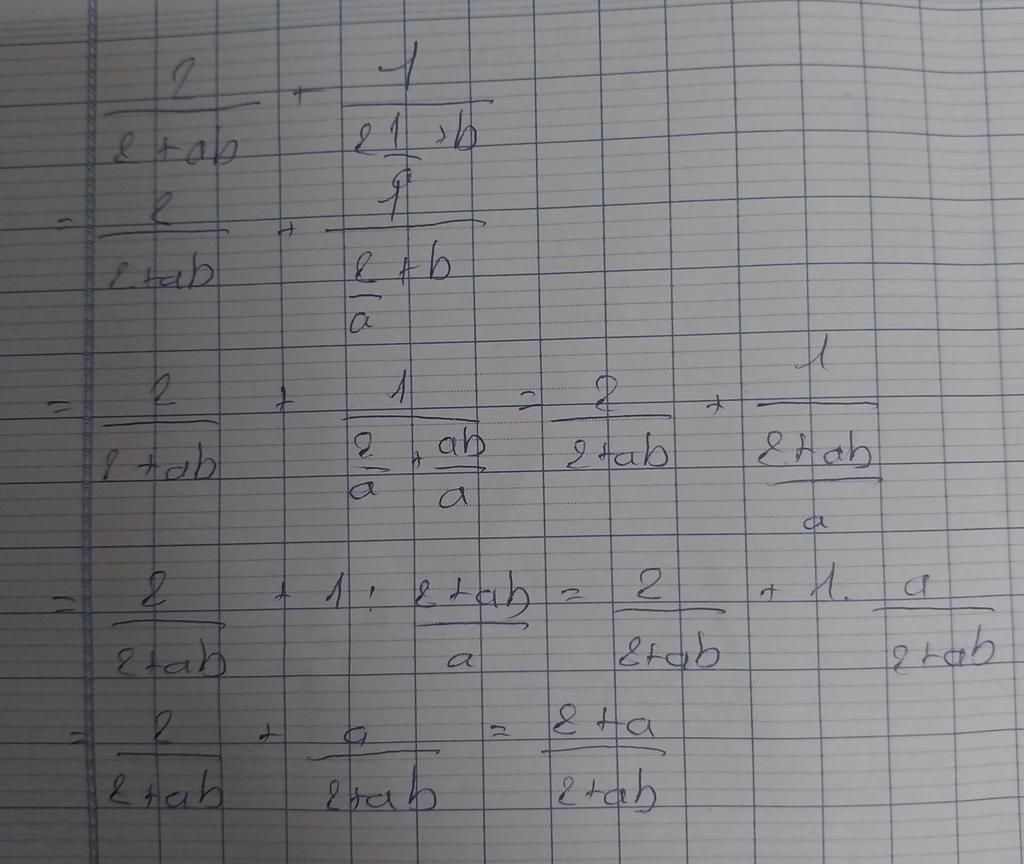 2/(2+ab) + 1/(2 1/a +b)
= 2/(2+ab) + 1/(2/a + b)
= 2/(2+ab) + 1/(2/a + ab/a) = 2/(2+ab) + 1/((2+ab)/a)
= 2/(2+ab) + 1 : (2+ab)/a = 2/(2+ab) + 1. a/(2+ab)
= 2/(2+ab) + a/(2+ab) = (2+a)/(2+ab)